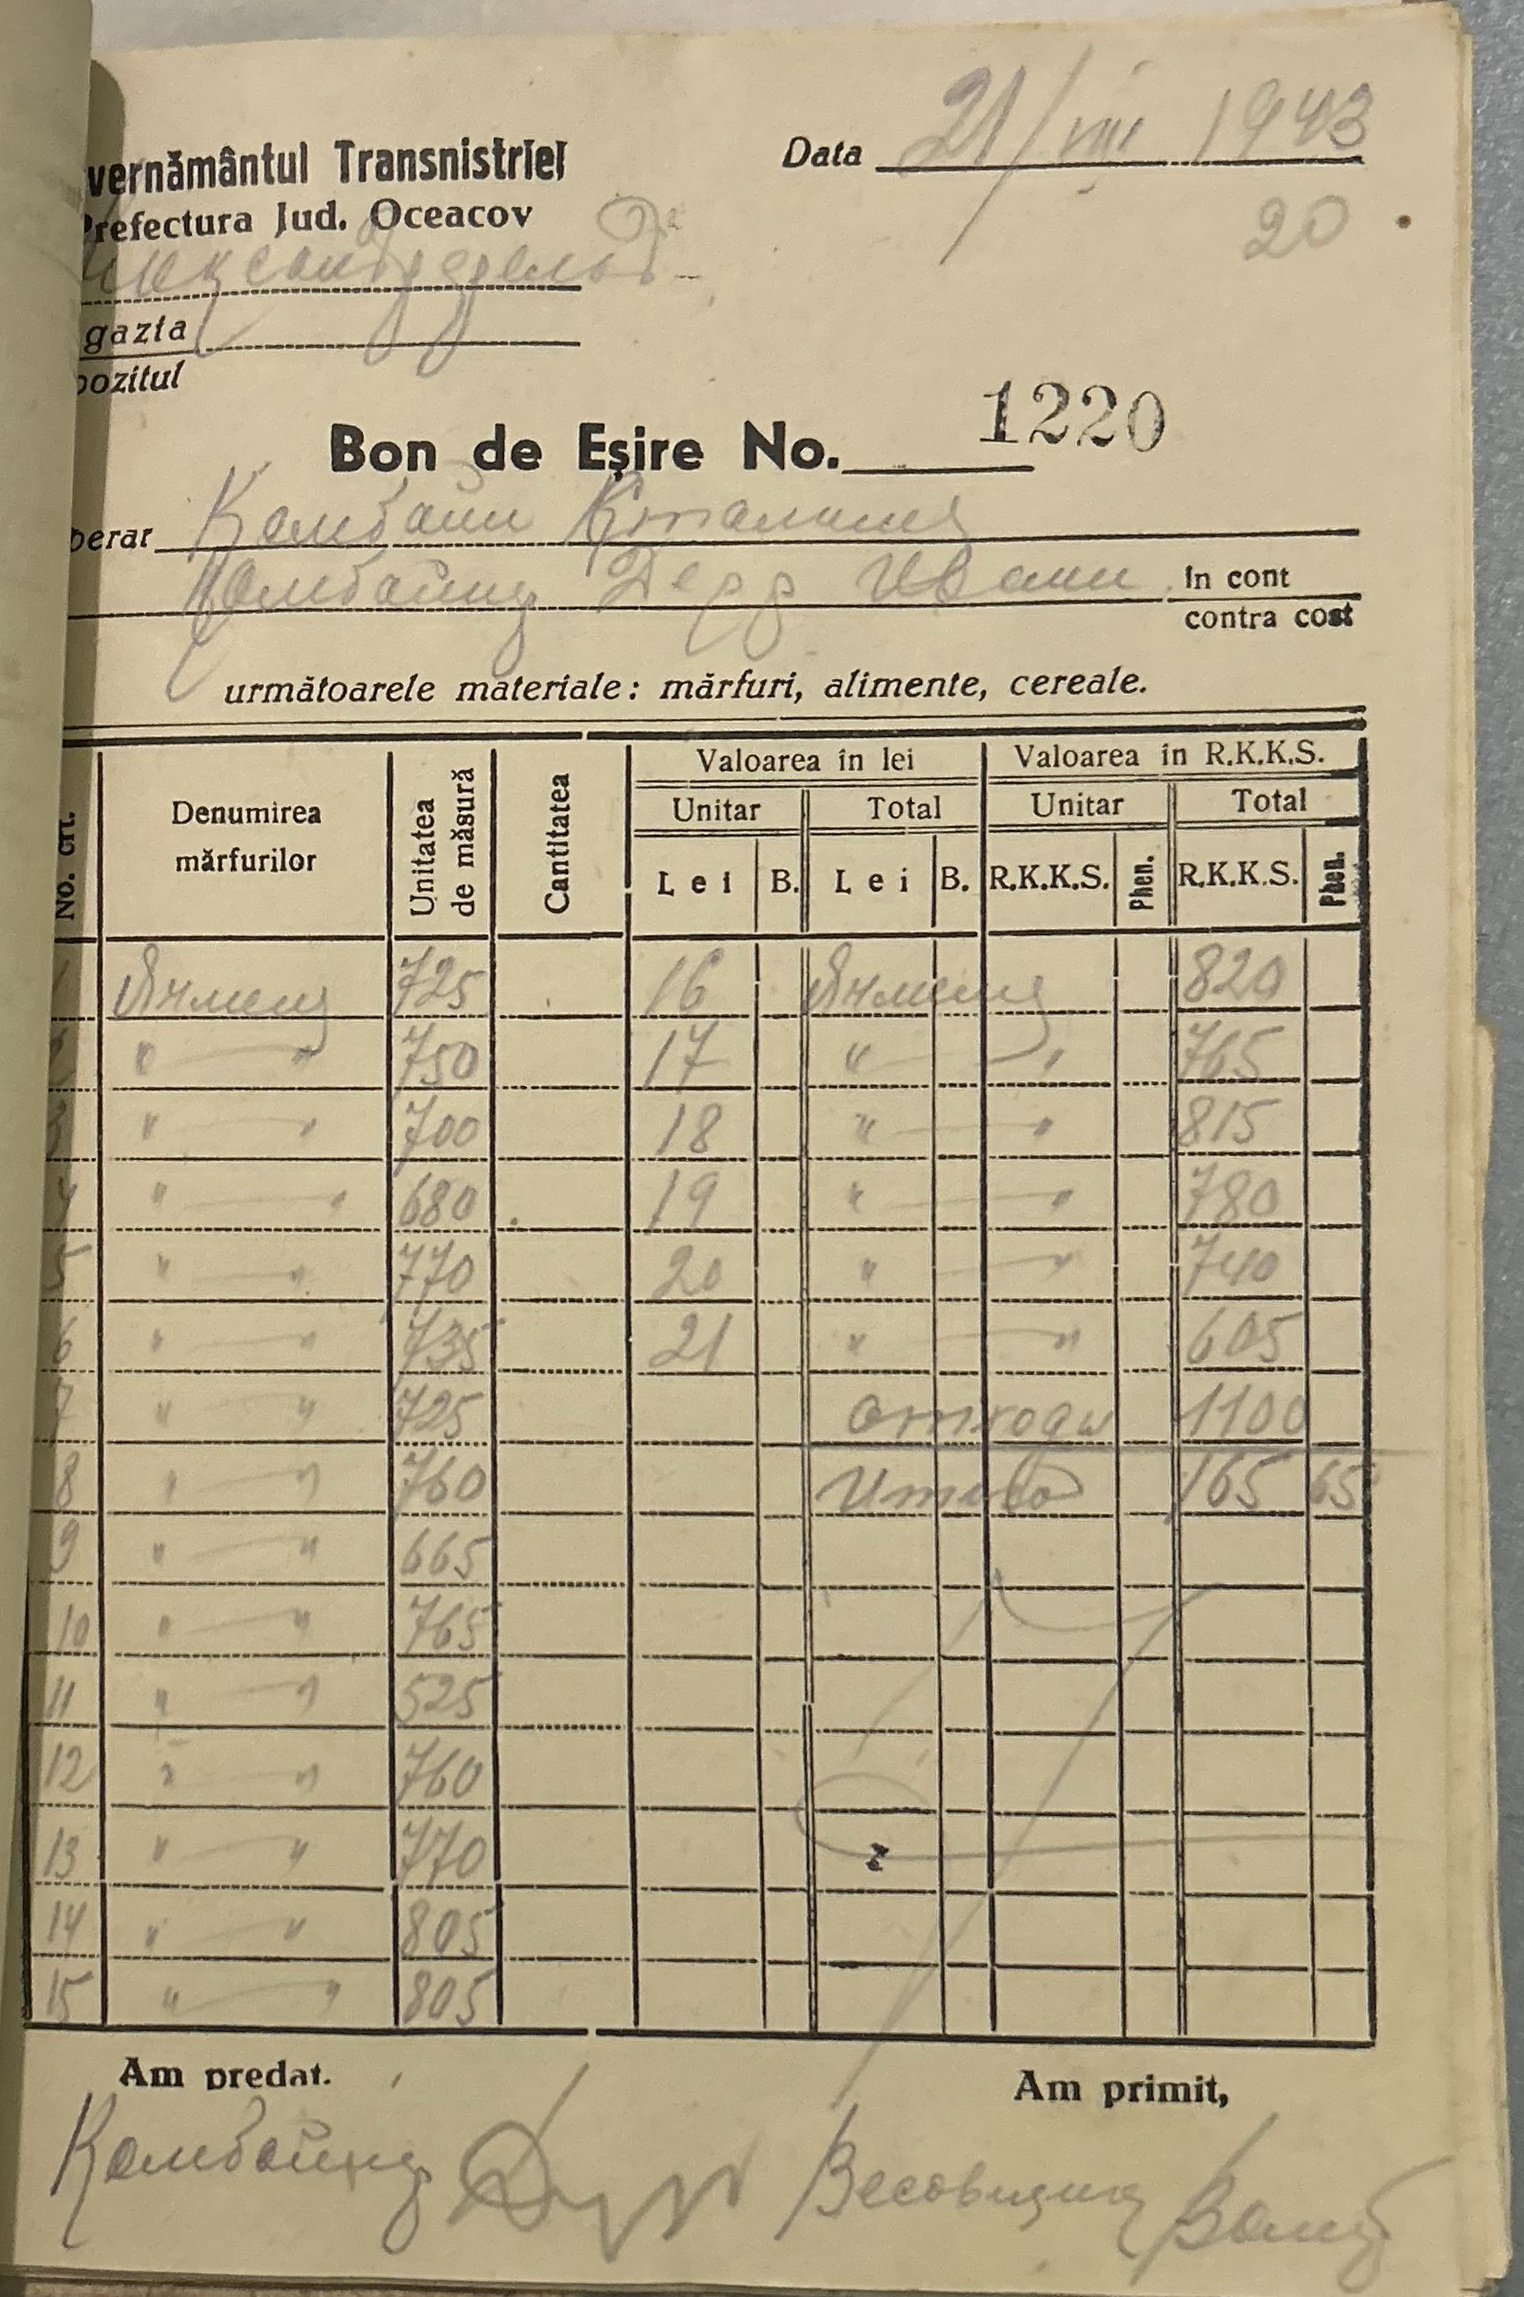 vernământul Transnistriei
Data 21/VIII 1943
Prefectura Jud. Oceacov
20
gazia
pozitul
Bon de Eșire No. 1220
berar Комбайн
Комбайнер Иван în cont
contra cost
următoarele materiale: mărfuri, alimente, cereale.
No. crt. Denumirea mărfurilor Unitatea de măsură Cantitatea Valoarea în lei Valoarea în R.K.K.S.
Unitar Total Unitar Total
Lei B. Lei B. R.K.K.S. Phen. R.K.K.S. Phen.
1 Ячмень 725 16 Ячмень 820
2 " — " 750 17 " — " 765
3 " — " 700 18 " — " 815
4 " — " 680 19 " — " 780
5 " — " 770 20 " — " 740
6 " — " 735 21 " — " 605
7 " — " 725 Отходы 1100
8 " — " 760 Итого 165 65
9 " — " 665
10 " — " 765
11 " — " 525
12 " — " 760
13 " — " 770
14 " — " 805
15 " — " 805
Am predat. Am primit,
Комбайнер Весовщик